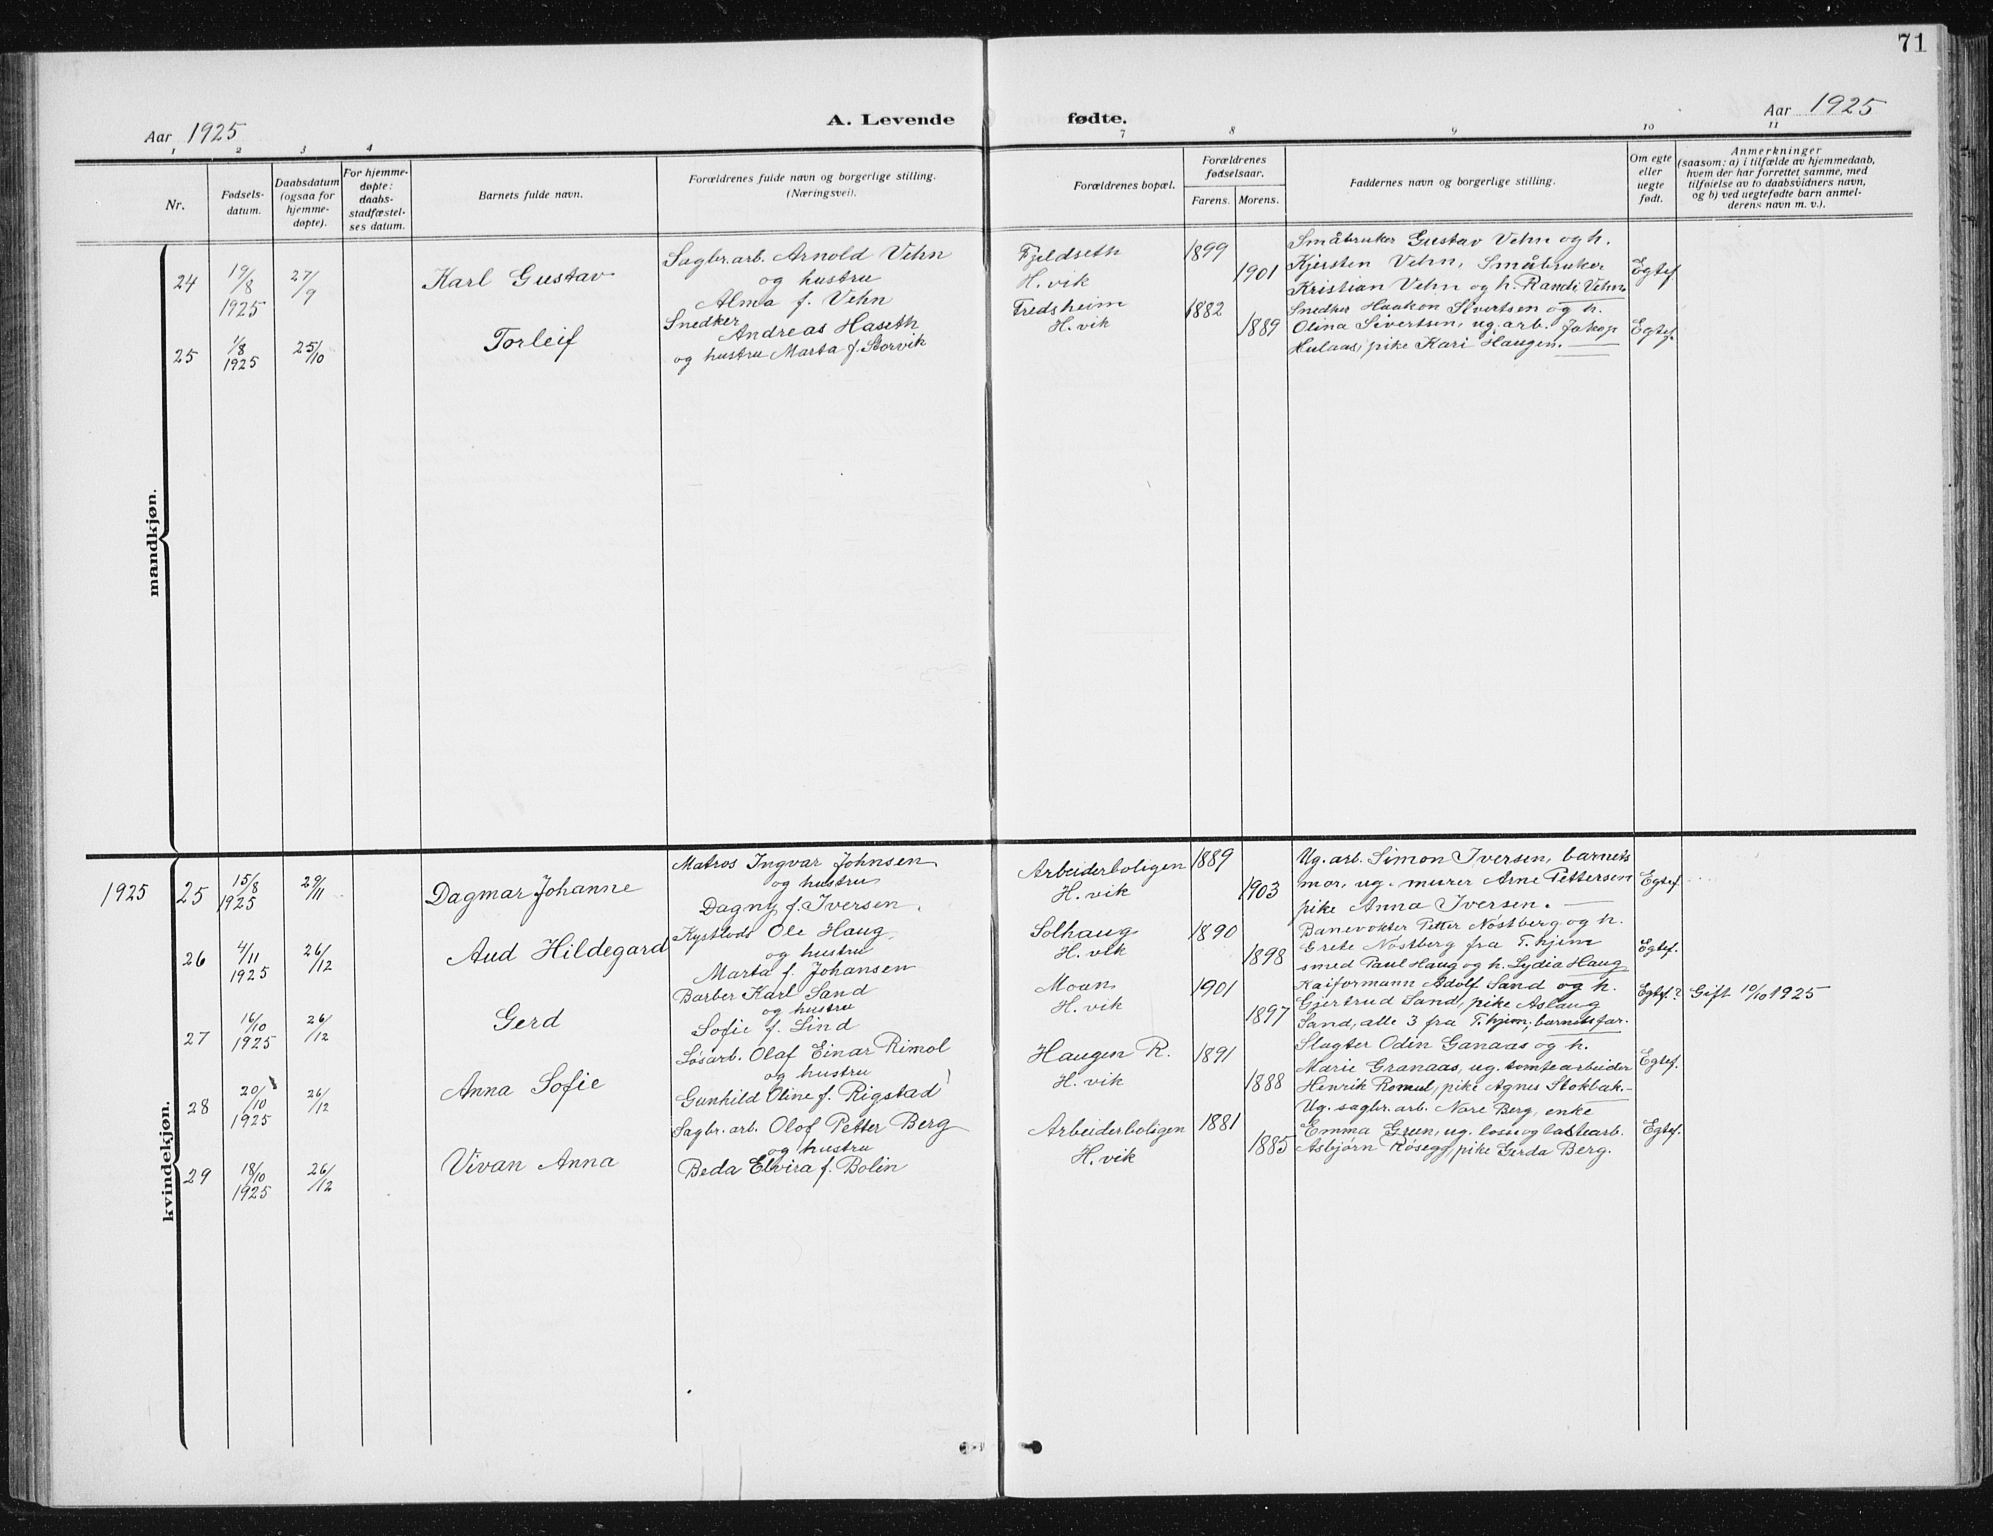 71
Aar 1925
A. Levende fødte.
Aar 1925
1 2 3 4 7 8 9 10 11
Nr.
Fødsels-
datum.
Daabsdatum
(ogsaa for
hjemme-
døpte).
For hjemme-
døpte:
daabs-
stadfæstel-
ses datum.
Barnets fulde navn.
Forældrenes fulde navn og borgerlige stilling.
(Næringsvei).
Forældrenes bopæl.
Forældrenes
fødselsaar.
Farens. Morens.
Faddernes navn og borgerlige stilling.
Om egte
eller
uegte
født.
Anmerkninger
(saasom: a) i tilfælde av hjemmedaab,
hvem der har forrettet samme, med
tilføielse av to daabsvidners navn,
og b) ved uegtefødte barn anmel-
derens navn m. v.).
mandkjøn.
24
19/8
1925
27/9
Karl Gustav
Sagbr. arb. Arnold Vehn
og hustru
Alma f. Vehn
Fjeldseth
H. vik
1899
1901
Småbruker Gustav Vehn og h.
Kjersten Vehn, Småbruker
Kristian Vehn og h. Randi Vehn
Egtef.
25
1/8
1925
25/10
Torleif
Snedker
Andreas Haseth
og hustru Marta f. Storvik
Fredsheim
H. vik
1882
1889
Snedker Haakon Sivertsen og h.
Olina Sivertsen, ug. arb. Jakop
Hulaas, pike Kari Haugen.
Egtef.
kvindekjøn.
1925
25
15/8
1925
29/11
Dagmar Johanne
Matros Ingvar Johnsen
og hustru
Dagny f. Iversen.
Arbeiderboligen
H. vik
1889
1903
Ug. arb. Simon Iversen, barnets
mor, ug. murer Arne Pettersen
pike Anna Iversen.
Egtef.
26
4/11
1925
26/12
Aud Hildegard
Kystlods Ole Haug
og hustru
Marta f. Johansen
Solhaug
H. vik
1890
1898
Banevokter Petter Nøstberg og h.
Grete Nøstberg fra T. hjem
smed Paul Haug og h. Lydia Haug
Egtef.
27
16/10
1925
26/12
Gerd
Barber Karl Sand
og hustru
Sofie f. Lind
Moan
H. vik
1901
1897
Kaiformann Adolf Sand og h.
Gjertrud Sand, pike Aslaug
Sand, alle 3 fra T. hjem, barnets far.
Egtef?
Gift 10/10 1925
28
20/10
1925
26/12
Anna Sofie
Løsarb. Olaf Einar Rimol
og hustru
Gunhild Oline f. Rigstad
Haugen R.
H. vik
1891
1888
Slagter Odin Ganaas og h.
Marie Granaas, ug. tomtearbeider
Henrik Romul, pike Agnes Stokbak.
Egtef.
29
18/10
1925
26/12
Vivan Anna
Sagbr. arb. Olof Petter Berg
og hustru
Beda Elvira f. Bolin
Arbeiderboligen
H. vik
1881
1885
Ug. sagbr. arb. Nore Berg, enke
Emma Green, ug. losse og lastearb.
Asbjørn Røsegg, pike Gerda Berg.
Egtef.